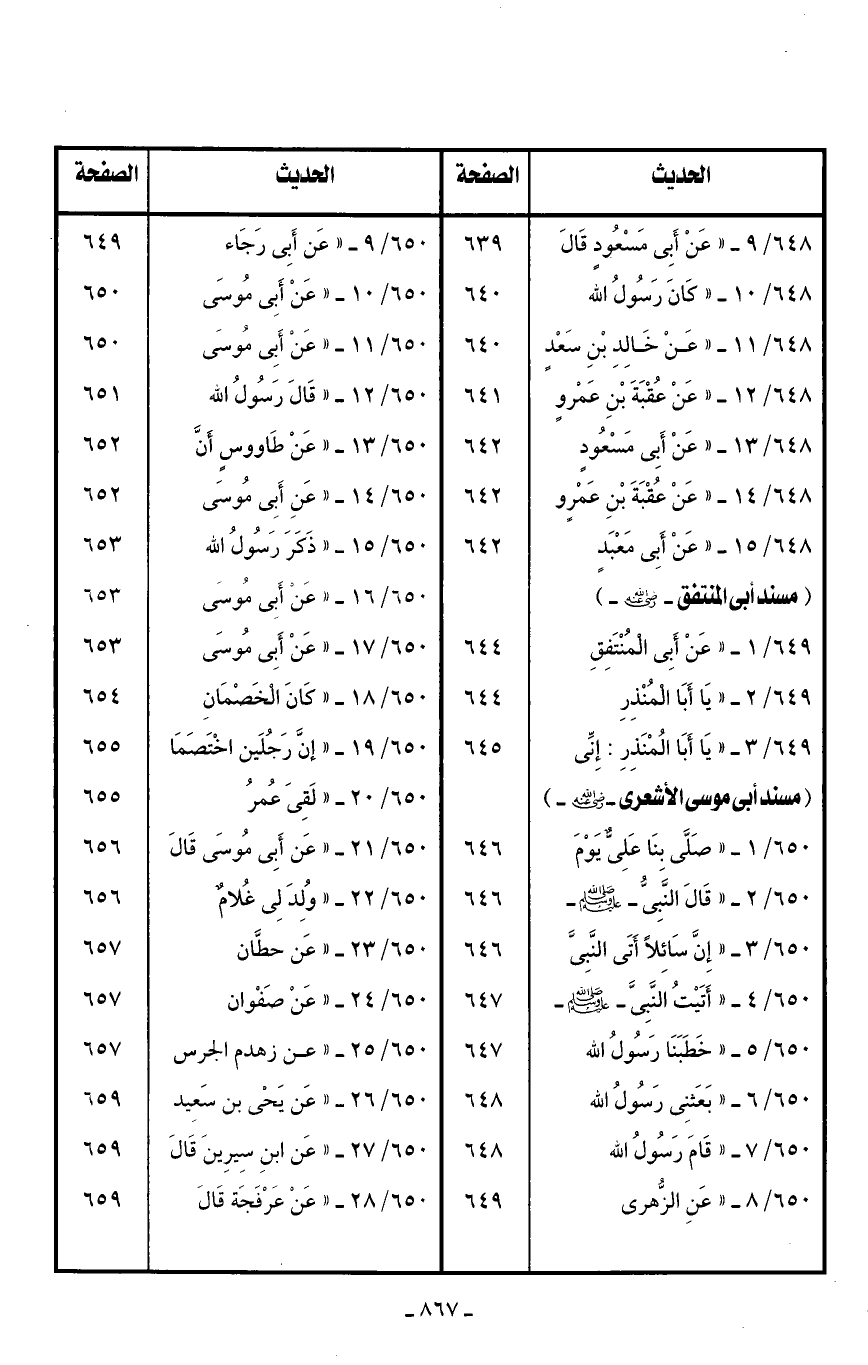 الحديث الصفحة
٩/٦٤٨ ـ « عَنْ أَبِى مَسْعُودٍ قَالَ ٦٣٩
١٠/٦٤٨ ـ « كَانَ رَسُولُ الله ٦٤٠
١١/٦٤٨ ـ « عَـنْ خَـالِدِ بْنِ سَعْدٍ ٦٤٠
١٢/٦٤٨ ـ « عَنْ عُقْبَةَ بْنِ عَمْرٍو ٦٤١
١٣/٦٤٨ ـ « عَنْ أَبِى مَسْعُودٍ ٦٤٢
١٤/٦٤٨ ـ « عَنْ عُقْبَةَ بْنِ عَمْرٍو ٦٤٢
١٥/٦٤٨ ـ « عَنْ أَبِى مَعْبَدٍ ٦٤٢
( مسند أبى المنتفق ـ رضي الله عنه ـ )
١/٦٤٩ ـ « عَنْ أَبِى الْمُنْتَفِقِ ٦٤٤
٢/٦٤٩ ـ « يَا أَبَا الْمُنْذِرِ ٦٤٤
٣/٦٤٩ ـ « يَا أَبَا الْمُنْذِرِ : إِنِّى ٦٤٥
( مسند أبى موسى الأشعرى ـ رضي الله عنه ـ )
١/٦٥٠ ـ « صَلَّى بِنَا عَلِىٌّ يَوْمَ ٦٤٦
٢/٦٥٠ ـ « قَالَ النَّبِىُّ ـ ﷺ ـ ٦٤٦
٣/٦٥٠ ـ « إِنَّ سَائِلاً أَتَى النَّبِىَّ ٦٤٦
٤/٦٥٠ ـ « أَتَيْتُ النَّبِىَّ ـ ﷺ ـ ٦٤٧
٥/٦٥٠ ـ « خَطَبَنَا رَسُولُ الله ٦٤٧
٦/٦٥٠ ـ « بَعَثَنِى رَسُولُ الله ٦٤٨
٧/٦٥٠ ـ « قَامَ رَسُولُ الله ٦٤٨
٨/٦٥٠ ـ « عَنِ الزُّهرِى ٦٤٩
الحديث الصفحة
٩/٦٥٠ ـ « عَن أَبِى رَجَاء ٦٤٩
١٠/٦٥٠ ـ « عَنْ أَبِى مُوسَى ٦٥٠
١١/٦٥٠ ـ « عَنْ أَبِى مُوسَى ٦٥٠
١٢/٦٥٠ ـ « قَالَ رَسُولُ الله ٦٥١
١٣/٦٥٠ ـ « عَنْ طَاووسٍ أَنَّ ٦٥٢
١٤/٦٥٠ ـ « عَنِ أَبِى مُوسَى ٦٥٢
١٥/٦٥٠ ـ « ذَكَرَ رَسُولُ الله ٦٥٣
١٦/٦٥٠ ـ « عَنْ أَبِى مُوسَى ٦٥٣
١٧/٦٥٠ ـ « عَنْ أَبِى مُوسَى ٦٥٣
١٨/٦٥٠ ـ « كَانَ الْخَصْمَانِ ٦٥٤
١٩/٦٥٠ ـ « إِنَّ رَجُلَين اخْتَصَمَا ٦٥٥
٢٠/٦٥٠ ـ « لَقِىَ عُمرُ ٦٥٥
٢١/٦٥٠ ـ « عَن أَبِى مُوسَى قَالَ ٦٥٦
٢٢/٦٥٠ ـ « وُلِدَ لِى غُلامٌ ٦٥٦
٢٣/٦٥٠ ـ « عَن حطَّان ٦٥٧
٢٤/٦٥٠ ـ « عَنْ صَفْوان ٦٥٧
٢٥/٦٥٠ ـ « عـن زهدم الجرس ٦٥٧
٢٦/٦٥٠ ـ « عَن يَحْيى بن سَعِيد ٦٥٩
٢٧/٦٥٠ ـ « عَن ابنِ سِيرِينَ قَالَ ٦٥٩
٢٨/٦٥٠ ـ « عَنْ عَرْفَجَة قَالَ ٦٥٩
ـ ٨٦٧ ـ